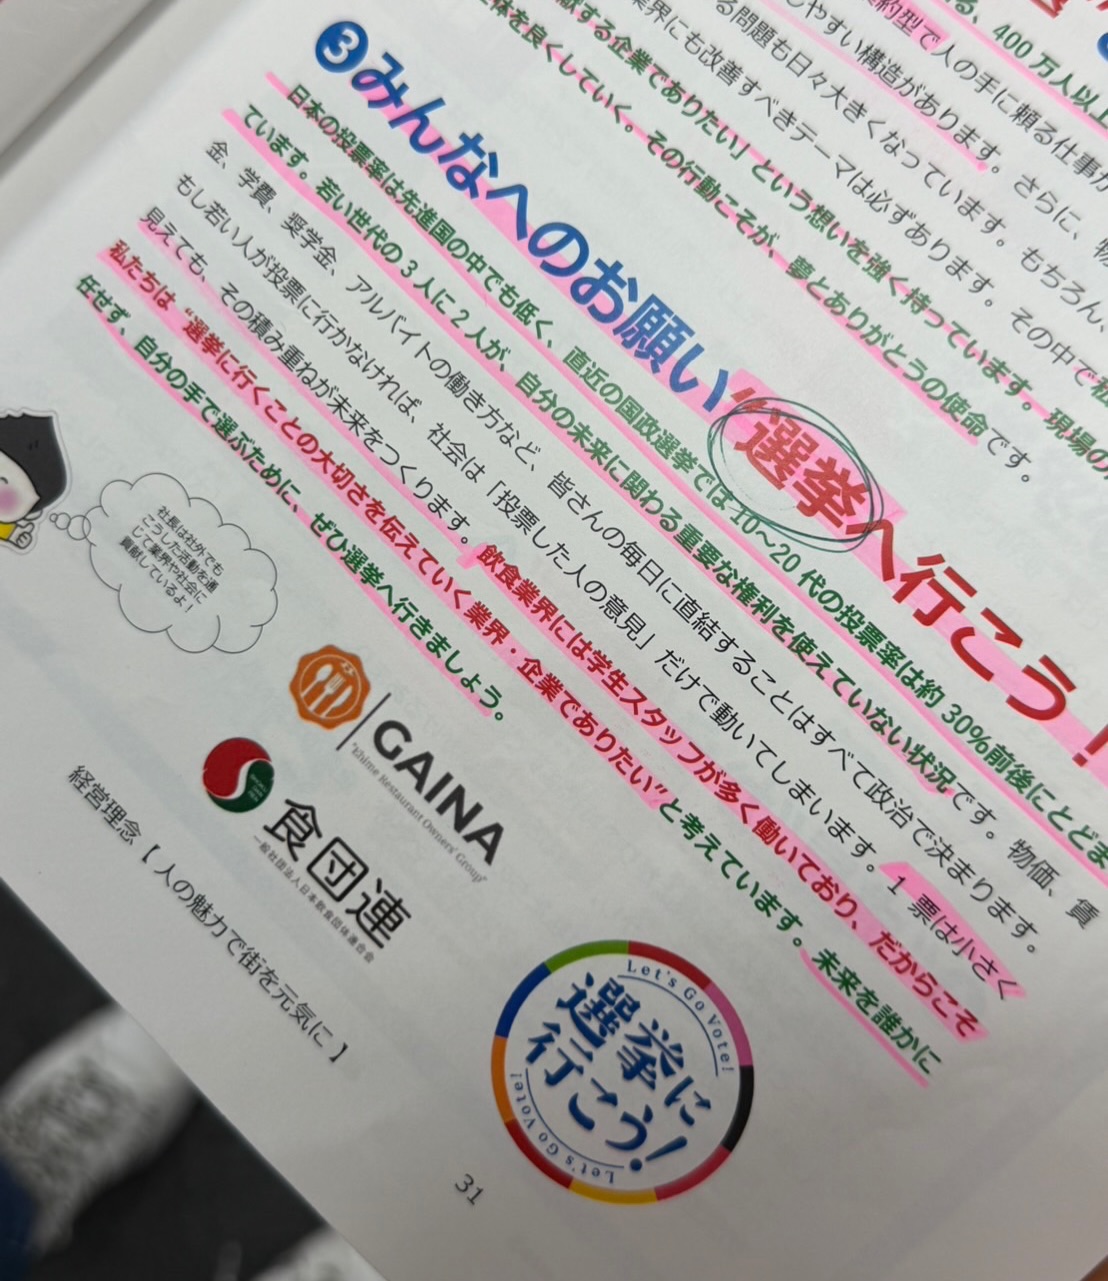 る、400万人以上
約型で人の手に頼る仕事が
しやすい構造があります。さらに、物
る問題も日々大きくなっています。もちろん、
業界にも改善すべきテーマは必ずあります。その中で私
献する企業でありたい」という想いを強く持っています。現場の
体を良くしていく。その行動こそが、夢とありがとうの使命です。
3 みんなへのお願い “選挙へ行こう！
日本の投票率は先進国の中でも低く、直近の国政選挙では10〜20代の投票率は約30%前後にとどま
ています。若い世代の3人に2人が、自分の未来に関わる重要な権利を使えていない状況です。物価、賃
金、学費、奨学金、アルバイトの働き方など、皆さんの毎日に直結することはすべて政治で決まります。
もし若い人が投票に行かなければ、社会は「投票した人の意見」だけで動いてしまいます。1票は小さく
見えても、その積み重ねが未来をつくります。飲食業界には学生スタッフが多く働いており、だからこそ
私たちは“選挙に行くことの大切さを伝えていく業界・企業でありたい”と考えています。未来を誰かに
任せず、自分の手で選ぶために、ぜひ選挙へ行きましょう。
社長は社外でも
こうした活動を通
じて業界や社会に
貢献しているよ！
GAINA
"Ehime Restaurant Owners' Group"
食団連
一般社団法人日本飲食団体連合会
Let's Go Vote!
選挙に
行こう！
Let's Go Vote!
経営理念【人の魅力で街を元気に】
31